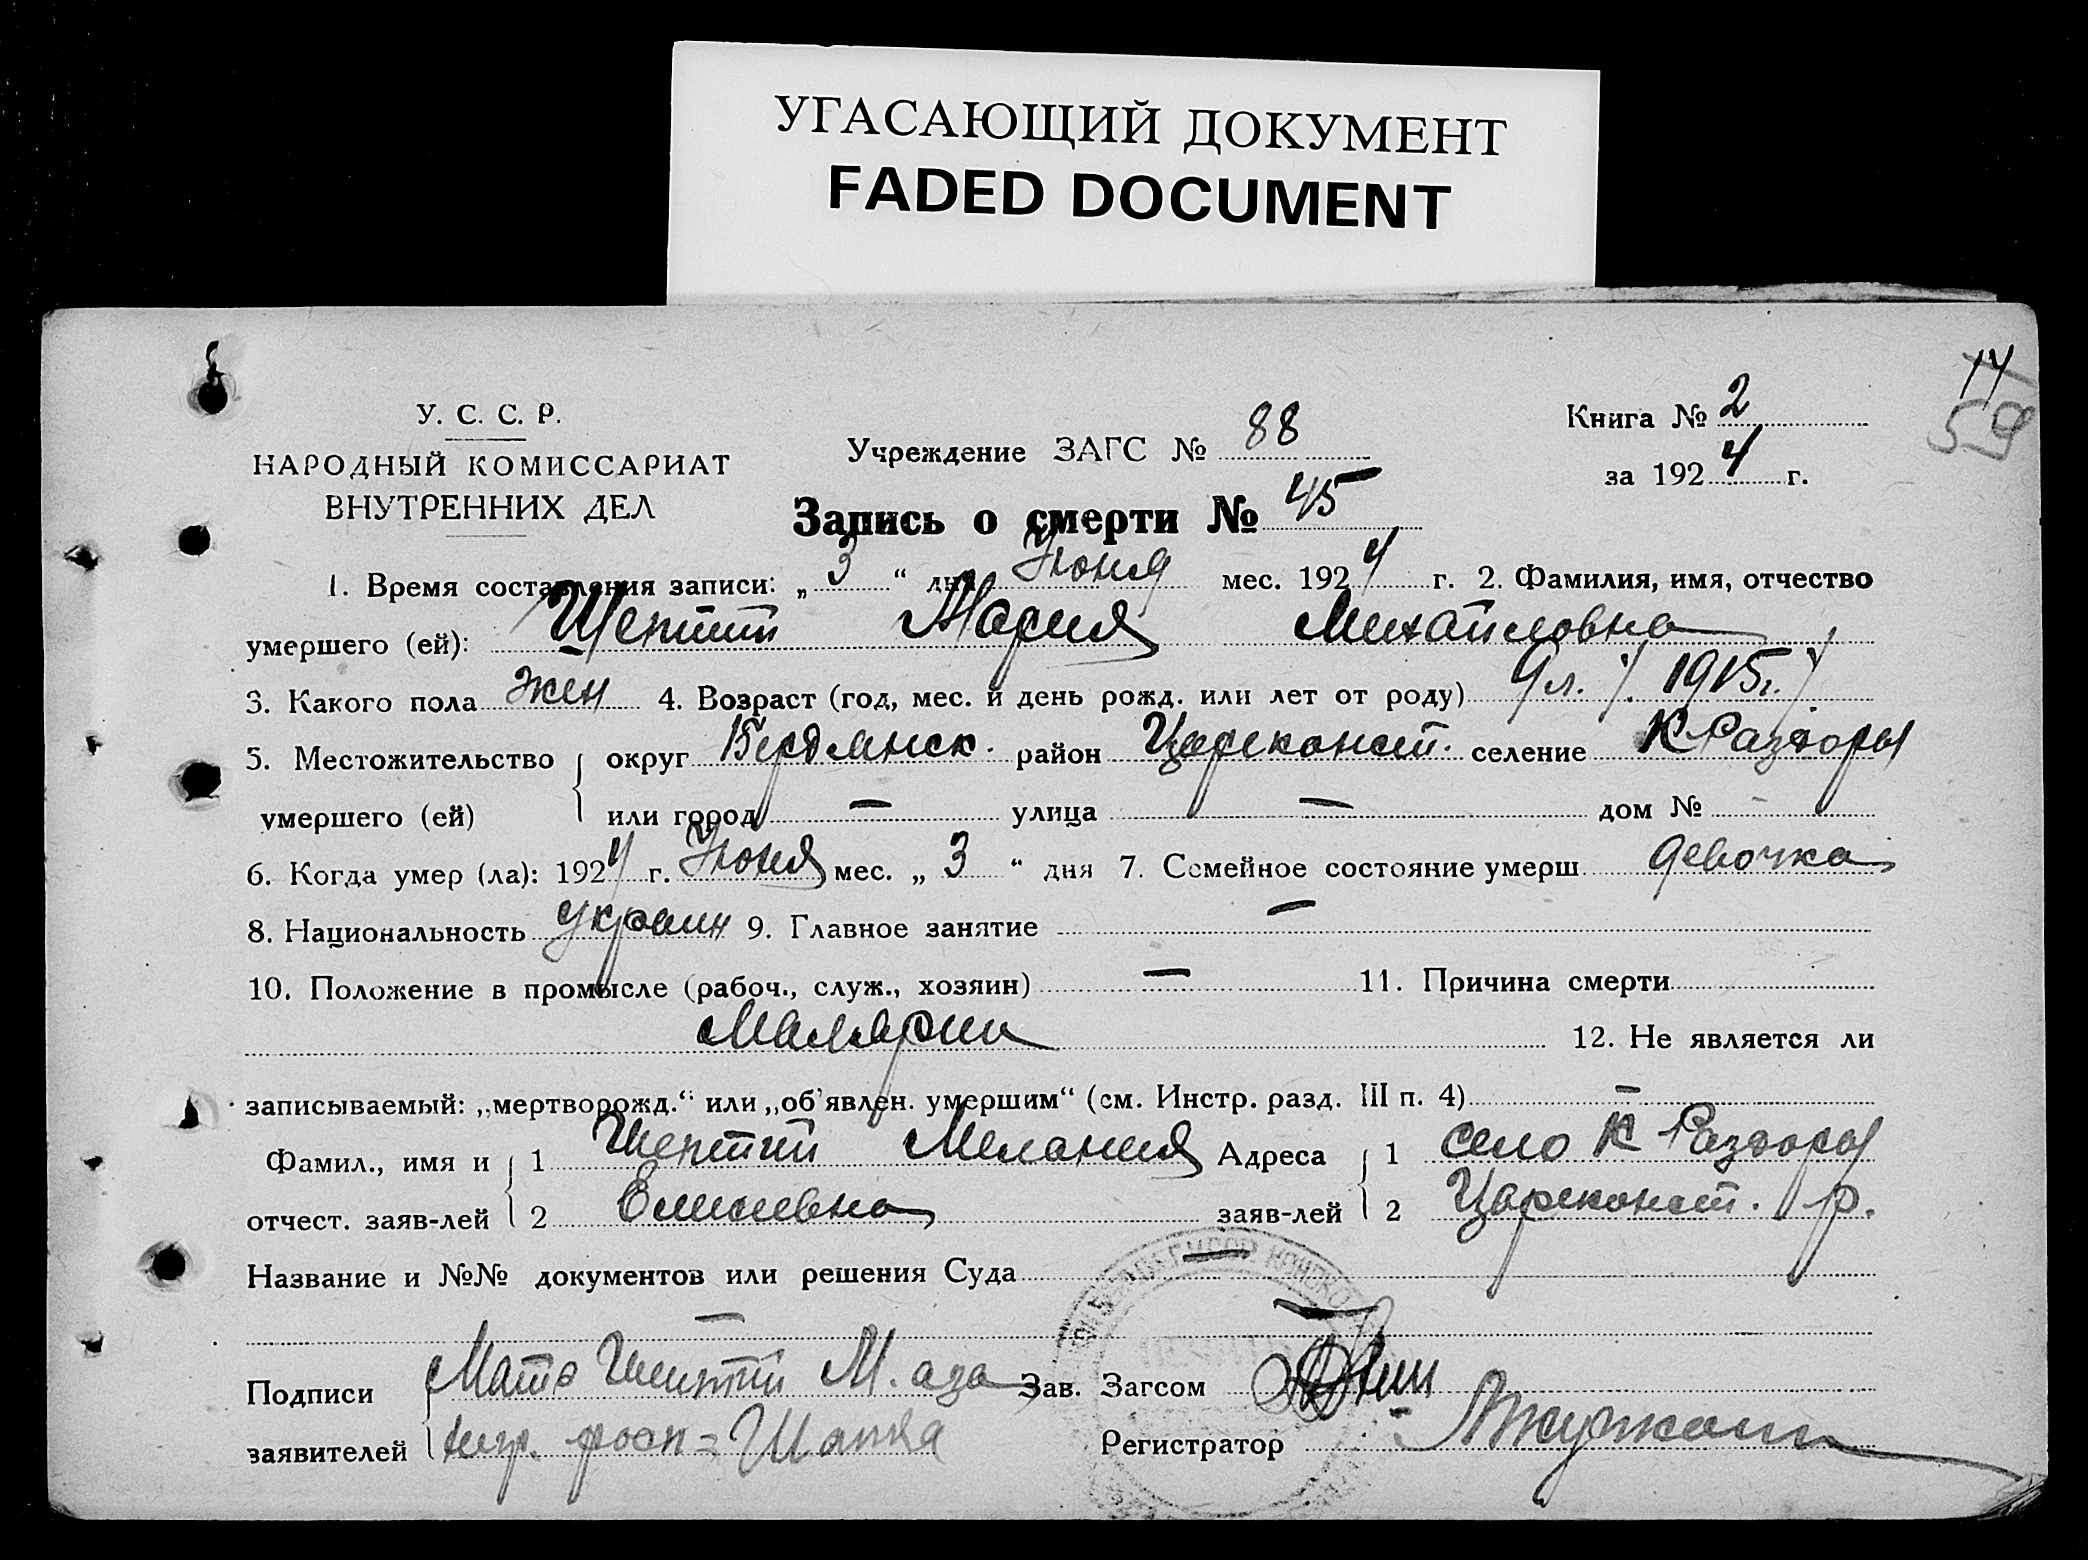 УГАСАЮЩИЙ ДОКУМЕНТ
FADED DOCUMENT
14
59
У. С. С. Р.
НАРОДНЫЙ КОМИССАРИАТ
ВНУТРЕННИХ ДЕЛ
Учреждение ЗАГС № 88
Книга № 2
за 1924 г.
Запись о смерти № 45
1. Время составления записи: „3“ дня Июня мес. 1924 г. 2. Фамилия, имя, отчество
умершего (ей): Шептий Мария Михайловна
3. Какого пола жен 4. Возраст (год, мес. и день рожд. или лет от роду) 9 л. 1915 г.
5. Местожительство округ Бердянск. район Цареконст. селение К Раздоры
умершего (ей) или город — улица — дом № -
6. Когда умер (ла): 1924 г. Июня мес. „3“ дня 7. Семейное состояние умерш. девочка
8. Национальность украин 9. Главное занятие —
10. Положение в промысле (рабоч., служ., хозяин) — 11. Причина смерти
Малярии 12. Не является ли
записываемый: „мертворожд.“ или „об'явлен. умершим“ (см. Инстр. разд. III п. 4) —
Фамил., имя и 1 Шептий Мелания Адреса 1 село К Раздоры
отчест. заяв-лей 2 Елисевна заяв-лей 2 Цареконст. р.
Название и №№ документов или решения Суда —
—
Подписи Мать Шептий М. а за Зав. Загсом
заявителей Шапка Регистратор